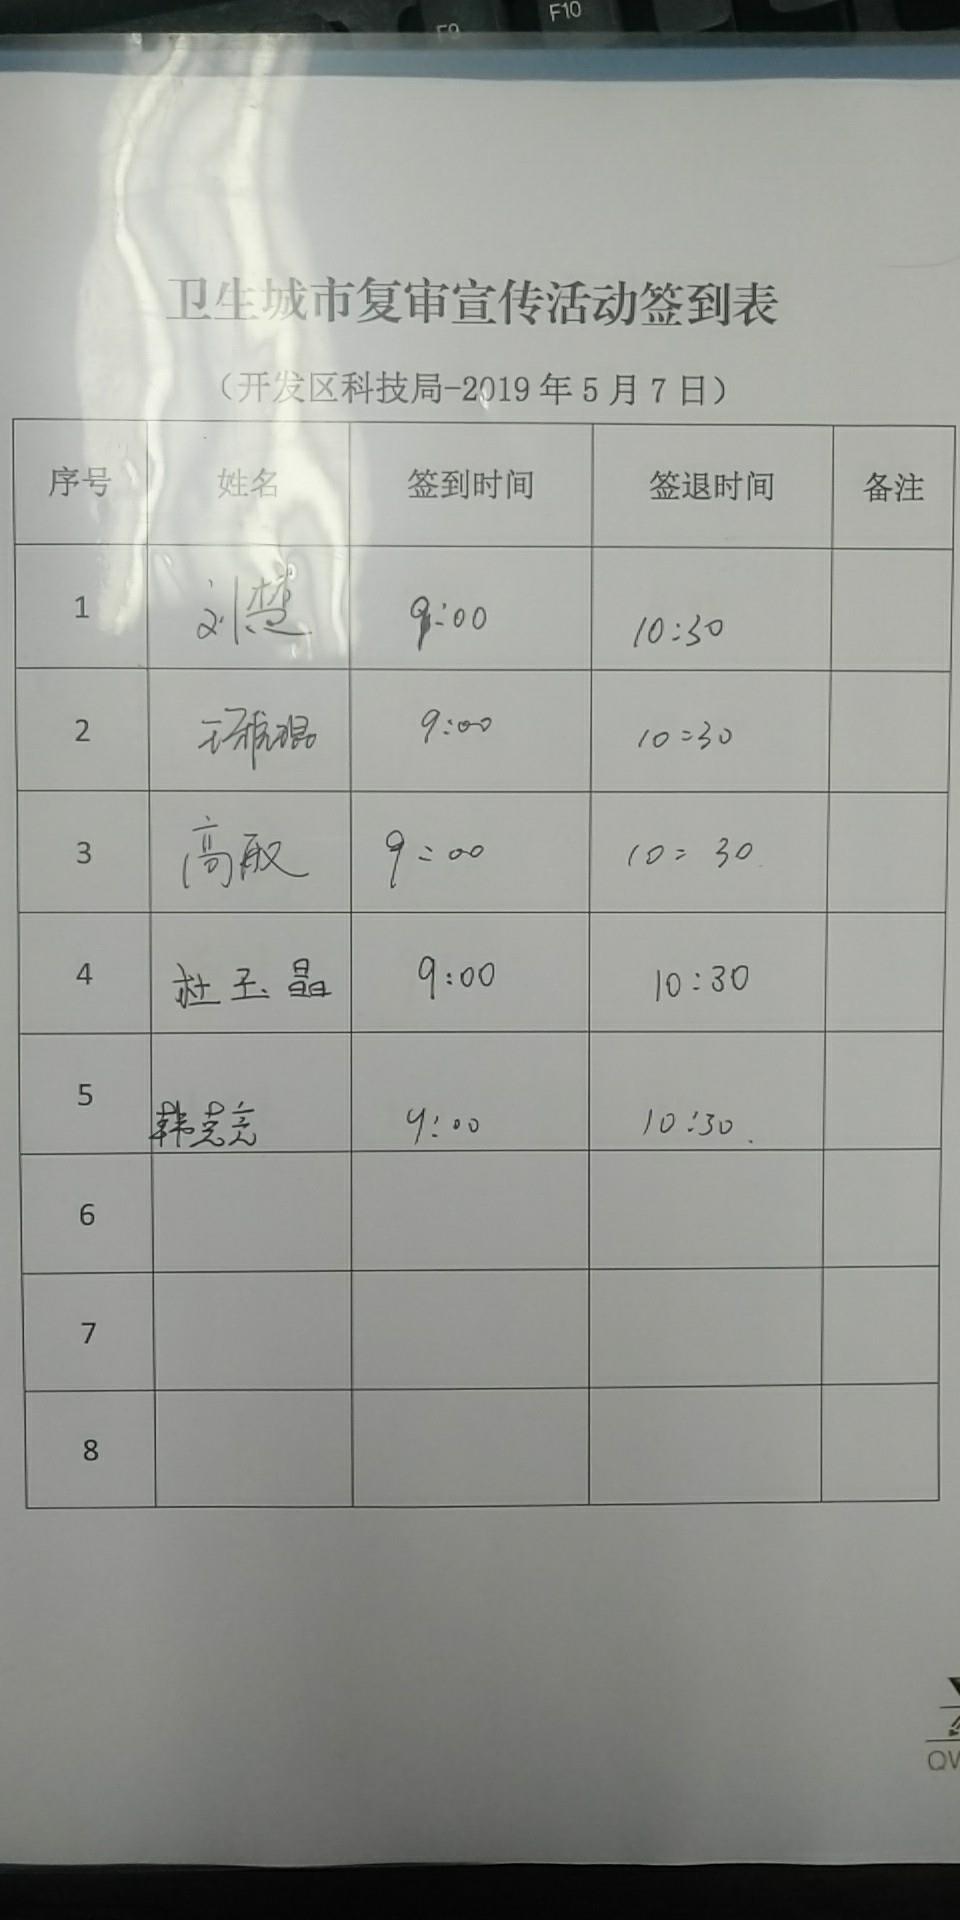 F9
F10
卫生城市复审宣传活动签到表
（开发区科技局-2019年5月7日）
序号 姓名 签到时间 签退时间 备注
1 刘楚 9:00 10:30
2 9:00 10:30
3 高殿 9:00 10:30
4 杜玉晶 9:00 10:30
5 韩芸亮 9:00 10:30
6
7
8